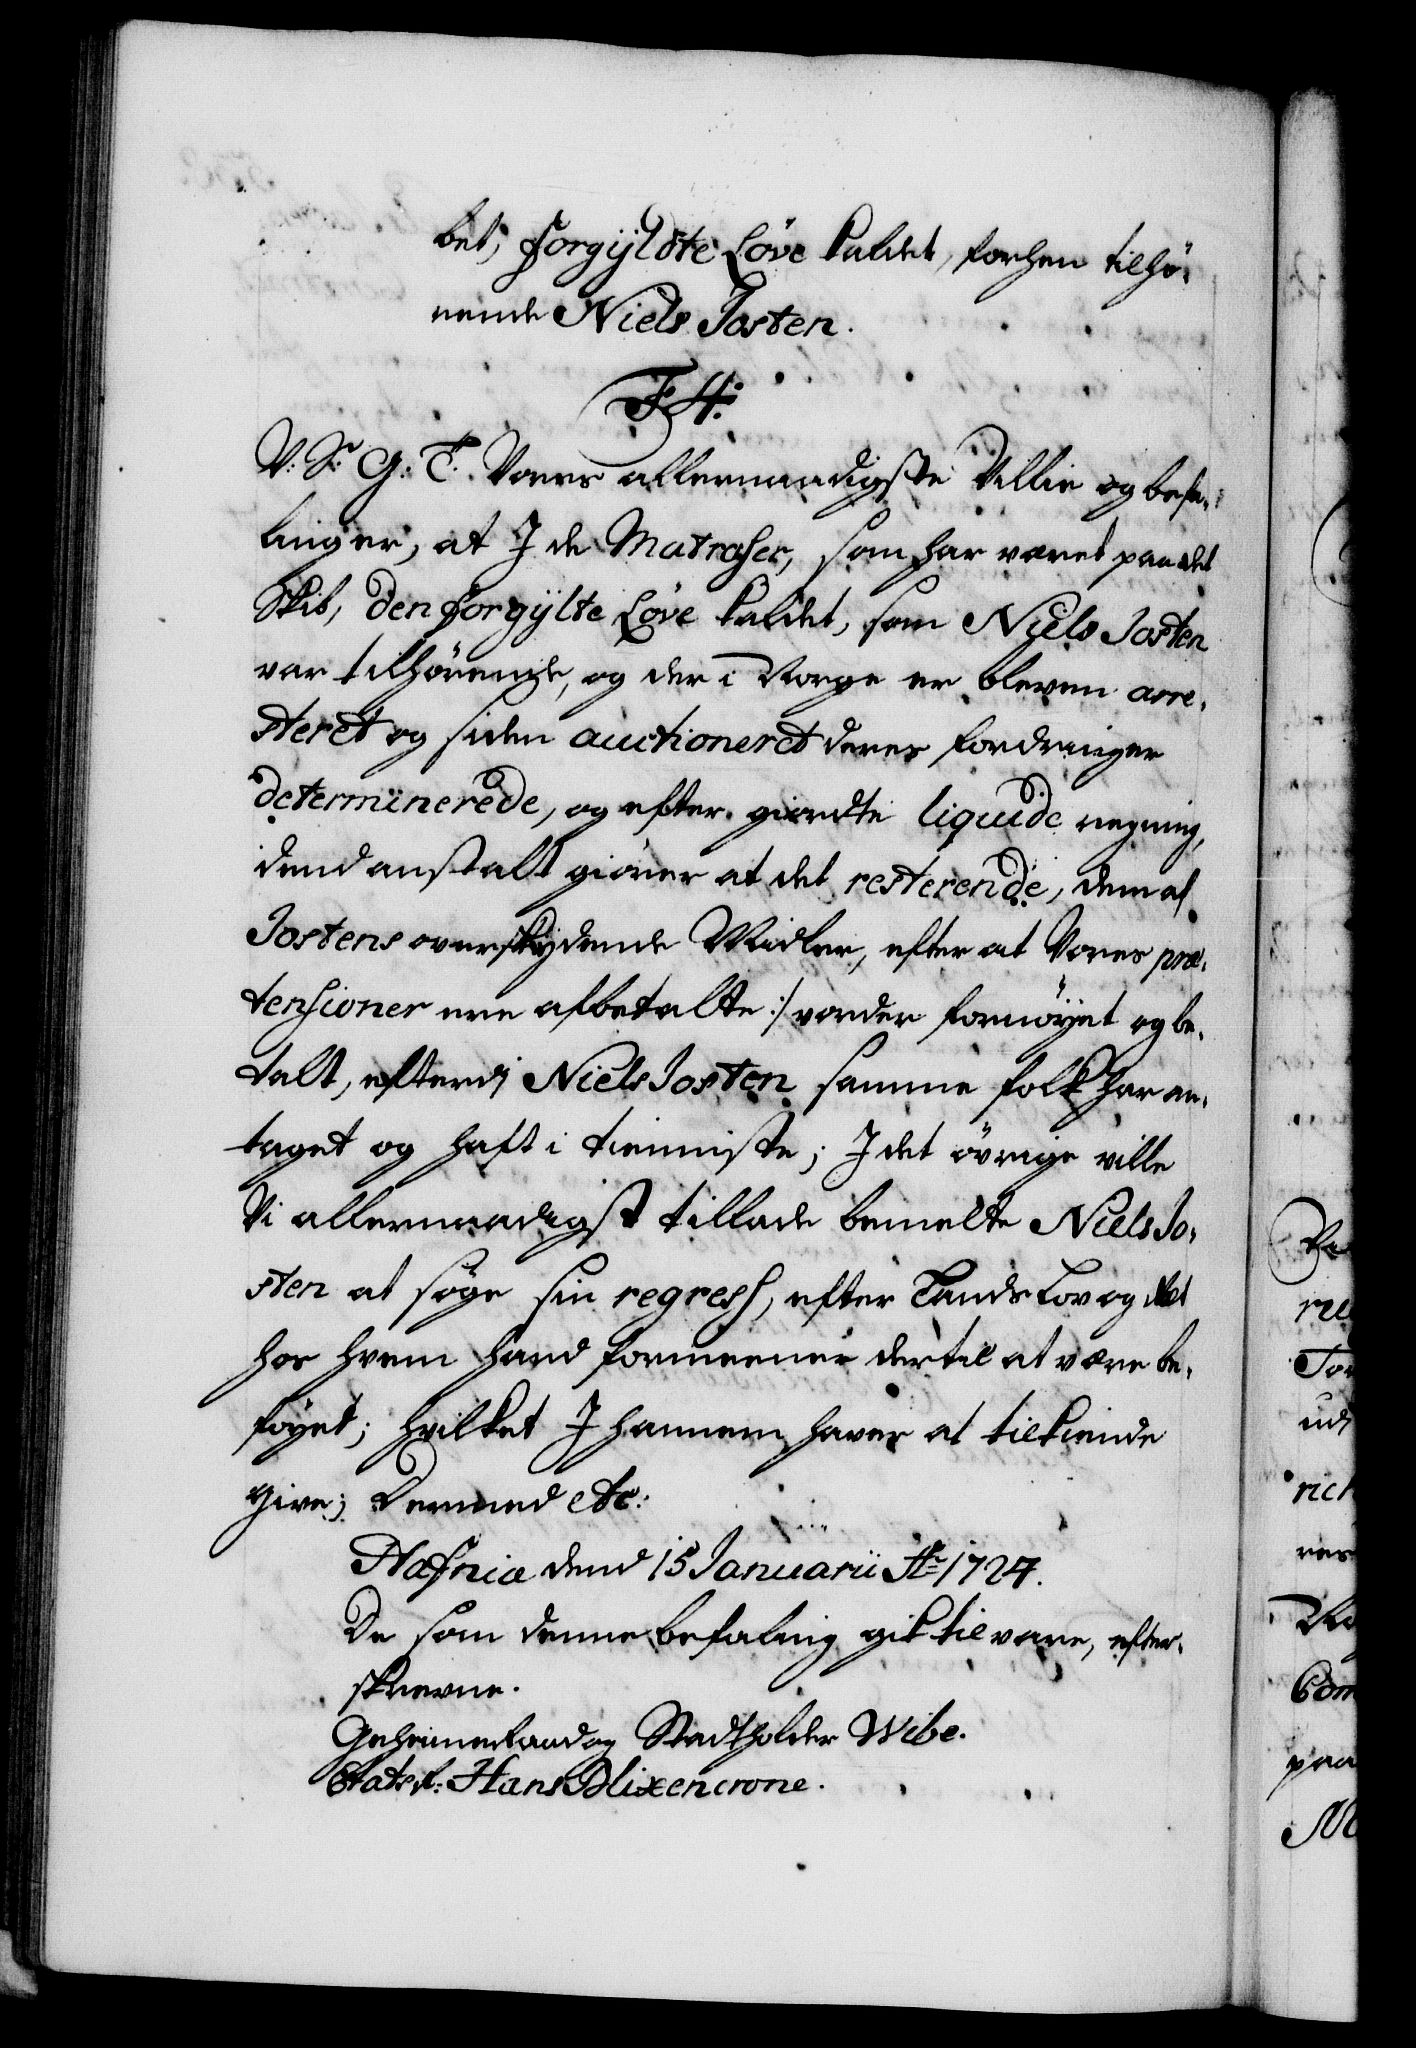 bet, forgyldte Løve kaldet, forhen tilhø-
rende Niels Josten.
F 4.
V: S: G: T: Vores allernaadigste Villie og befa-
linger, at J de Matroser, som har været paa det
Skib, den forgylte Løve kaldet, som Niels Josten
var tilhørende, og der i Norge er bleven arre-
steret og siden auctioneret deres fordringer
determinerede, og efter giordte liquide regning,
dend anstalt giører at det resterende, dem af
Jostens overskydende Midler, efter at Vores præ-
tensioner ere afbetalte :/ vorder fornøyet og be-
talt, efterdj Niels Josten samme folk har an-
taget og haft i tienniste; J det øvrige ville
Vi allernaadigst tillade bemelte Niels Jo-
sten at søge sin regress, efter Lands Lov og Ret
hos hvem hand formeener dertil at være be-
føyet; hvilket J hannem haver at tilkiende
give; Dermed etc:
Hafnia dend 15 Januarii Ao 1724.
De som denne befaling gik til vare, efter-
skrevne.
Geheimeraad og Stadtholder Wibe.
Etatsr: Hans Blixencrone.